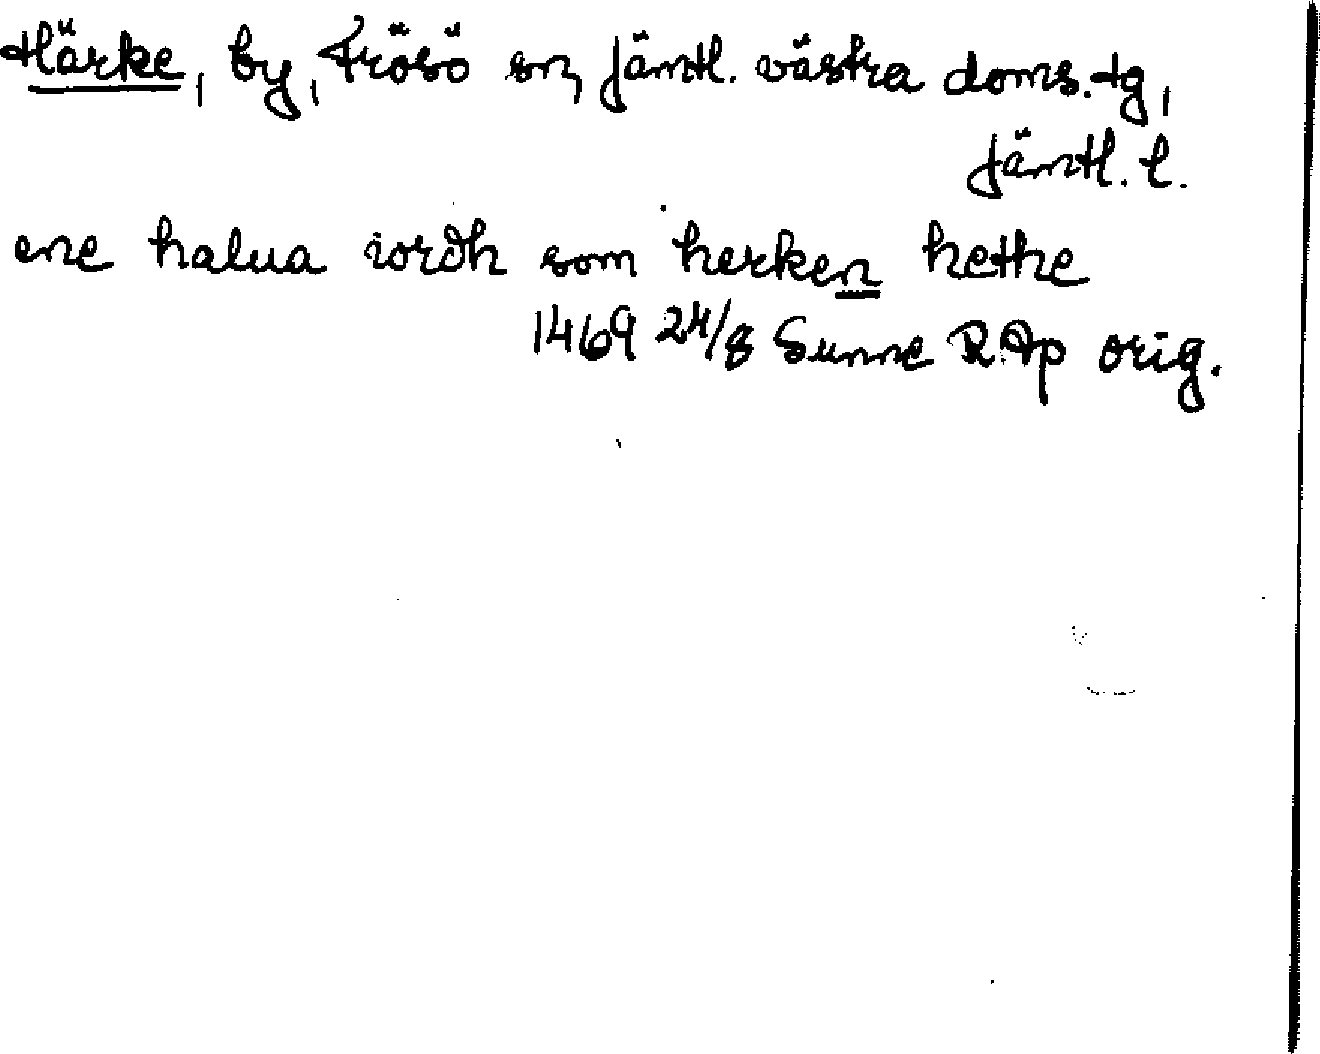 Härke, by, Frösö sn, Jämtl. västra doms.tg,
Jämtl. l.
ene halua iordh som herken hethe
1469 24/8 Sunne R.Ap orig.